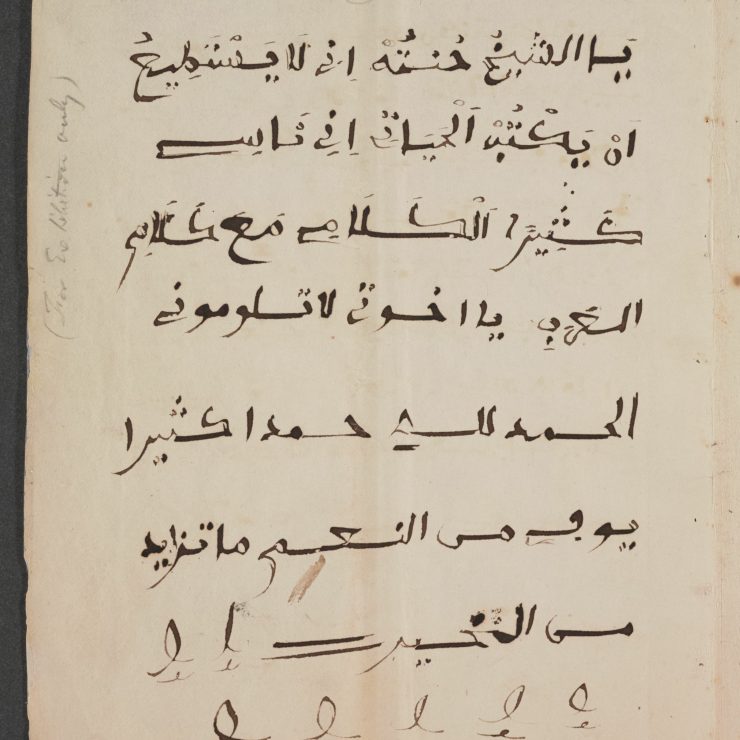 يَا الشَّيْخُ حُنتُهْ اِنِي لَا يَسْتَطِيعُ
اَنْ يَكْتُبْ اَلْحَيَاتِي اِنِي نَاسِي
كَثِيرَا اَلْكَلَامِ مَعَ كَلَامِ
العَرَبِ يا اخوتي لا تلوموني
الحمد لله حمدا كثيرا
يوفي من النعم ما تزايد
من الخير
(For Exhibition only)